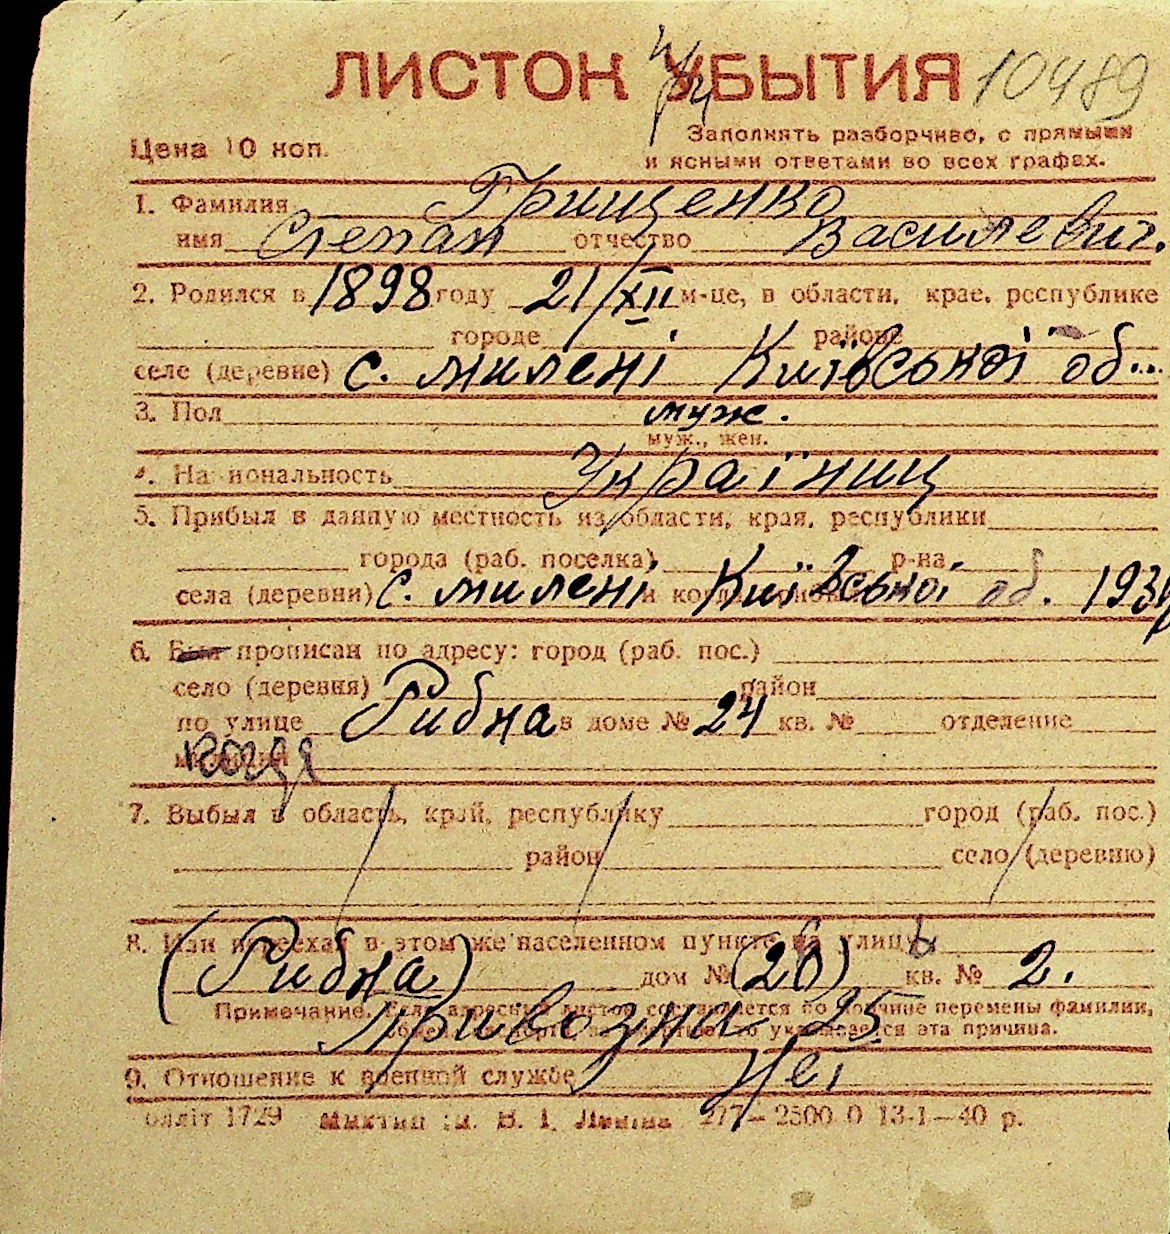 ЛИСТОК УБЫТИЯ 10489
Цена 10 коп.
Заполнять разборчиво, с прямыми
и ясными ответами во всех графах.
1. Фамилия Грищенко
имя Степан отчество Василевич.
2. Родился в 1898 году 21/XII м-це, в области, крае, республике
городе районе
селе (деревне) с. милені Київської об...
3. Пол муж.
муж., жен.
4. Национальность Україниц
5. Прибыл в данную местность из области, края, республики
города (раб. поселка) р-на
села (деревни) с. милені и когда Київської об.
6. Был прописан по адресу: город (раб. пос.)
село (деревня) район
по улице Рибна в доме № 24 кв. № отделение
когда
7. Выбыл в область, край, республику город (раб. пос.)
район село (деревню)
8. Или переехал в этом же населенном пункте на улицу
(Рибна) дом № (26) кв. № 2.
Примечание. Если адресный листок составляется по причине перемены фамилии,
указывается эта причина.
Привозна 25
9. Отношение к военной службе Нет
1729 им. В. І. Леніна 277—2500 0 13-1—40 р.